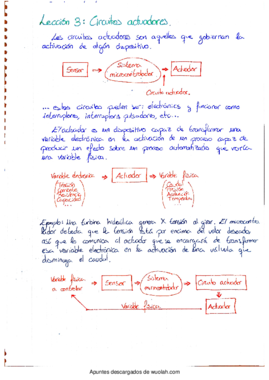 Lección 3: Circuitos actuadores.
Los circuitos actuadores son aquellos que gobiernan la
activación de algún dispositivo.
Sensor → Sistema microcontrolador → Actuador
Circuito actuador.
... estos circuitos pueden ser: electrónicos y funcionar como
interruptores, interruptores pulsadores, etc...
El actuador es un dispositivo capaz de transformar una
variable electrónica en la activación de un proceso capaz de
producir un efecto sobre un proceso automatizado que varía
una variable física.
Variable → Actuador → Variable física
Tensión
Corriente
Frecuencia
Capacidad
Caudal
Presión
Temperatura
Ejemplo: Una turbina hidráulica genera X tensión al girar. El microcontro
lador detecta que la tensión está por encima del valor deseado
así que lo comunica al actuador que se encargará de transformar
esa variable electrónica en la activación de una válvula que
disminuya el caudal.
Variable física a controlar → Sensor → Sistema microcontrolador → Circuito actuador
Variable física ← Actuador
Apuntes descargados de wuolah.com